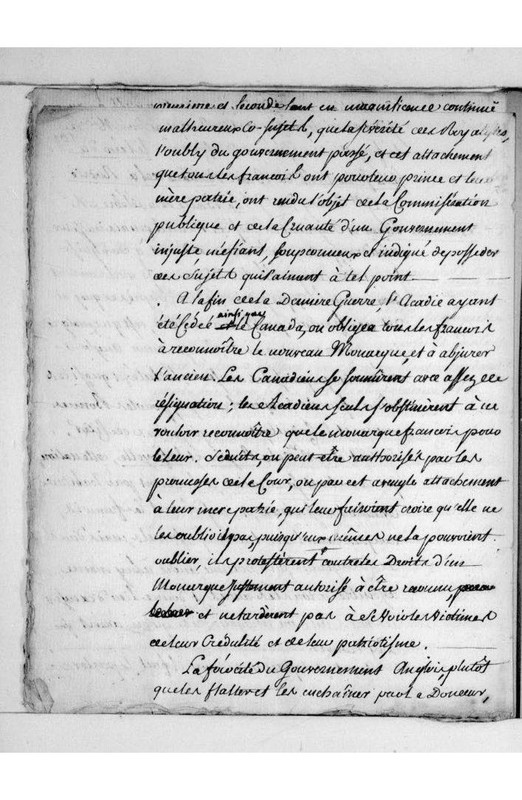 et seconde sont en continuë
malheureux co-sujets, que la sévérité des
l'oubly du gouvernement passé, et cet attachement
que tous les francois ont pour leur prince et leur
mère patrie, ont rendu l'objet de la Commisération
publique et de la Cruauté d'un Gouvernement
injuste méfiant, soupconneux et indigné de posseder
des sujets qui l'aiment à tel point.
A la fin de la Derniere Guerre l'Acadie ayant
été Cédée ainsi que le Canada, on obligea tous les francois
à reconnoître le nouveau Monarque et à abjurer
l'ancien. Les Canadiens se soumirent avec assez de
résignation; les Acadiens seuls s'obstinèrent à ne
vouloir reconnoître que le monarque francois pour
le leur. Séduits, ou peut être authorisés par les
promesses de le Cour, ou par cet aveugle attachement
à leur mere patrie, qui leur faisoient croire qu'elle ne
les oublioit pas, puisqu'eux mêmes ne la pouvoient
oublier, ils protestèrent contre les Droits d'un
Monarque justement autorisé à être reconnu,
et ne tardèrent pas à être les Victimes
de leur Crédulité et de leur patriotisme.
La férocité du Gouvernement Anglois, plutôt
que les flatter et les enchaîner par la Douceur,